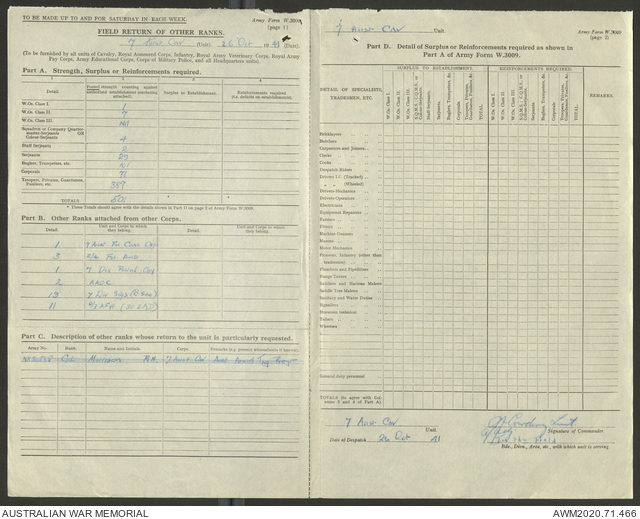 TO BE MADE UP TO AND FOR SATURDAY IN EACH WEEK.
Army Form W.3009
[page 1]
FIELD RETURN OF OTHER RANKS.
7 Aust Cav (Unit) 26 Oct 1941 (Date).
(To be furnished by all units of Cavalry, Royal Armoured Corps, Infantry, Royal Army Veterinary Corps, Royal Army Pay Corps, Army Educational Corps, Corps of Military Police, and all Headquarters units).
Part A. Strength, Surplus or Reinforcements required.
Detail
Surplus to Establishment.
Reinforcements required
(i.e. deficits on establishment)
W.Os. Class I. 1
W.Os. Class II. 7
W.Os. Class III.
Squadron or Company Quarter-master-Serjeants OR Colour-Serjeants 4
Staff Serjeants 2
Serjeants 29
Buglers, Trumpeters, etc.
Corporals 71
Troopers, Privates, Guardsmen, Fusiliers, etc. 387
TOTALS 501
* These Totals should agree with the details shown in Part D on page 2 of Army Form W.3009.
Part B. Other Ranks attached from other Corps.
Detail.
Unit and Corps to which they belong.
Detail.
Unit and Corps to which they belong.
1 7 Aust Div Cav
3
1 7 Div Postal Coy
2 AAOC
19 7 Div Sigs
11
Part C. Description of other ranks whose return to the unit is particularly requested.
Army No.
Rank.
Name and Initials.
Corps.
Cpl
7 Aust Cav
7 Aust Cav Unit.
Army Form W.3009
[page 2]
Part D. Detail of Surplus or Reinforcements required as shown in Part A of Army Form W.3009.
DETAIL OF SPECIALISTS, TRADESMEN, ETC.
SURPLUS TO ESTABLISHMENT.
REINFORCEMENTS REQUIRED
REMARKS.
W.Os. Class I.
W.Os. Class II.
W.Os. Class III.
S.Q.M.S., C.Q.M.S., or Colour-Serjeants
Staff Serjeants.
Serjeants
Buglers, Trumpeters, &c.
Corporals
Troopers, Privates, Guardsmen, Fusiliers, &c.
TOTAL
W.Os. Class I.
W.Os. Class II.
W.Os. Class III.
S.Q.M.S., C.Q.M.S., or Colour-Serjeants
Serjeants
Buglers, Trumpeters, &c.
Corporals
Troopers, Privates, Guardsmen, Fusiliers, &c.
TOTAL
Bricklayers
Butchers
Carpenters and Joiners
Clerks
Cooks
Despatch Riders
Drivers I.C. (Tracked)
" (Wheeled)
Drivers-Mechanics
Drivers-Operators
Electricians
Equipment Repairers
Farriers
Fitters
Machine Gunners
Masons
Motor Mechanics
Pioneers, Infantry (other than tradesmen)
Plumbers and Pipefitters
Range Takers
Saddlers and Harness Makers
Saddle Tree Makers
Sanitary and Water Duties
Signallers
Storemen technical
Tailors
Wheelers
General duty personnel
TOTALS (to agree with Columns 3 and 4 of Part A).
7 Aust Cav Unit.
Date of Despatch 26 Oct 41
Lieut
Signature of Commander.
Bde., Divn., Area, etc., with which unit is serving.
AUSTRALIAN WAR MEMORIAL
AWM2020.71.466